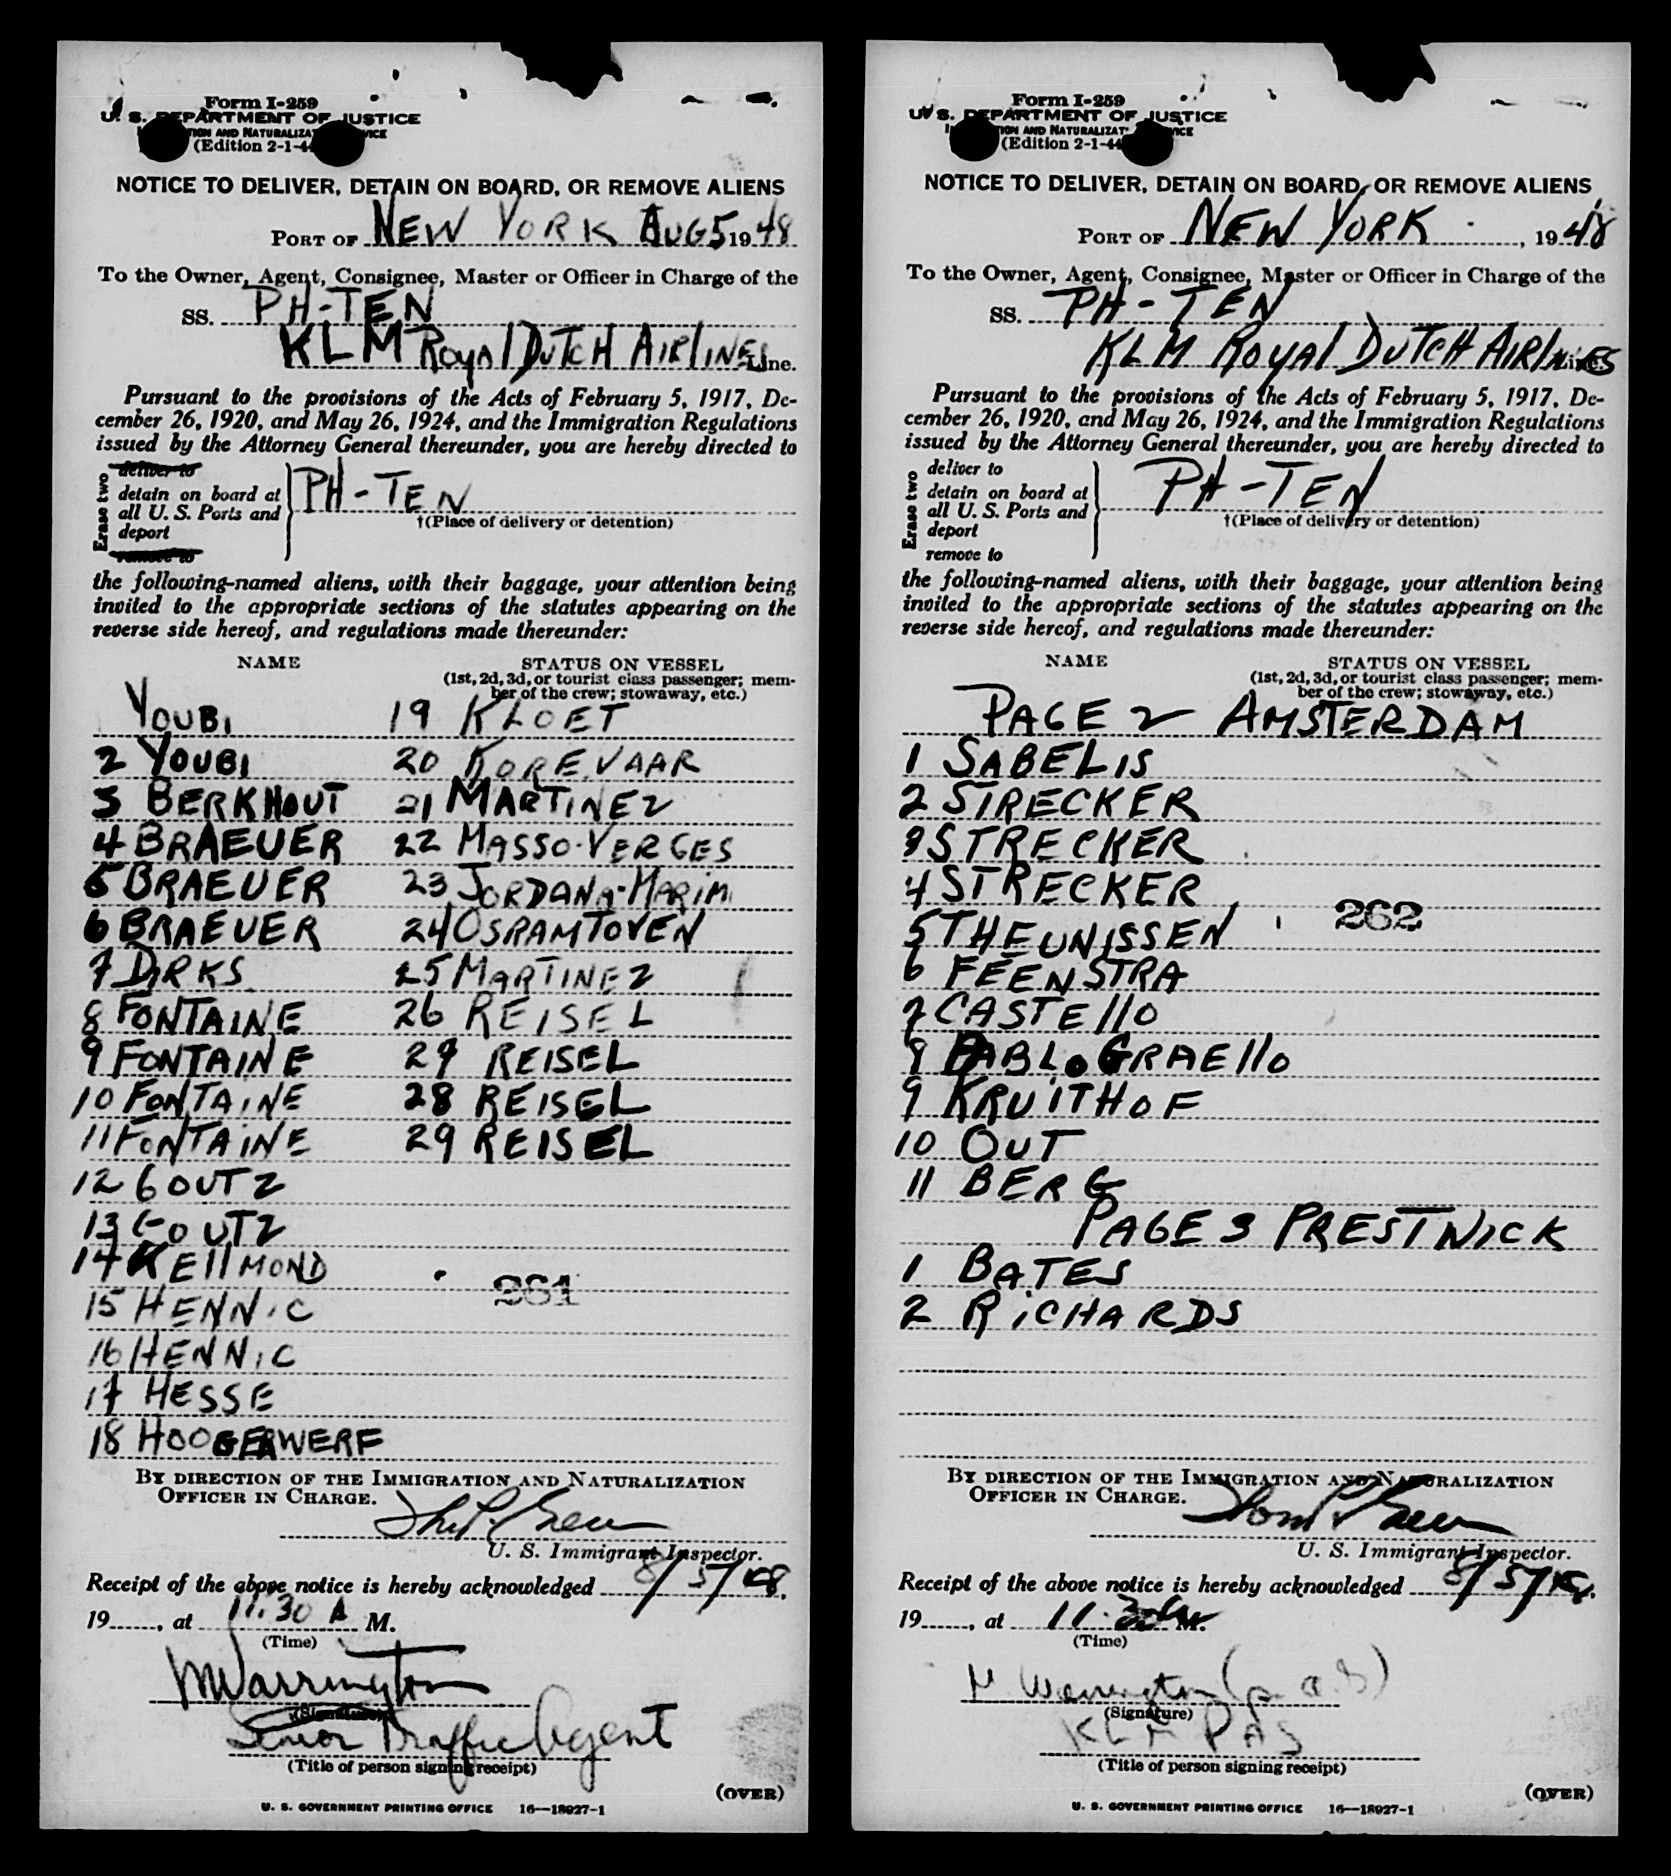 Form I-259
U. S. DEPARTMENT OF JUSTICE
(Edition 2-1-44
NOTICE TO DELIVER, DETAIN ON BOARD, OR REMOVE ALIENS
PORT OF NEW YORK AUG 5 1948
To the Owner, Agent, Consignee, Master or Officer in Charge of the
SS. PH-TEN
KLM Royal DUTCH AIRLINES Line.
Pursuant to the provisions of the Acts of February 5, 1917, De-
cember 26, 1920, and May 26, 1924, and the Immigration Regulations
issued by the Attorney General thereunder, you are hereby directed to
Erase two
deliver to
detain on board at
all U. S. Ports and
deport
remove to
PH-TEN
†(Place of delivery or detention)
the following-named aliens, with their baggage, your attention being
invited to the appropriate sections of the statutes appearing on the
reverse side hereof, and regulations made thereunder:
NAME STATUS ON VESSEL
(1st, 2d, 3d, or tourist class passenger; mem-
ber of the crew; stowaway, etc.)
YOUBI 19 KLOET
2 YOUBI 20 KOREVAAR
3 BERKHOUT 21 MARTINEZ
4 BRAEUER 22 MASSO-VERGES
5 BRAEUER 23 JORDANA-MARIM
6 BRAEUER 24 OSRAMTOVEN
7 DIRKS 25 MARTINEZ
8 FONTAINE 26 REISEL
9 FONTAINE 27 REISEL
10 FONTAINE 28 REISEL
11 FONTAINE 29 REISEL
12 GOUTZ
13 GOUTZ
14 KEllMOND
15 HENNIC 261
16 HENNIC
17 HESSE
18 HOOGERWERF
BY DIRECTION OF THE IMMIGRATION AND NATURALIZATION
OFFICER IN CHARGE.
U. S. Immigrant Inspector.
Receipt of the above notice is hereby acknowledged 8/5/48.
19......, at 11.30 A M.
(Time)
M Warrington
(Signature)
Senior Traffic Agent
(Title of person signing receipt)
(OVER)
U. S. GOVERNMENT PRINTING OFFICE 16—18027-1
Form I-259
U. S. DEPARTMENT OF JUSTICE
(Edition 2-1-44
NOTICE TO DELIVER, DETAIN ON BOARD, OR REMOVE ALIENS
PORT OF NEW YORK, 1948
To the Owner, Agent, Consignee, Master or Officer in Charge of the
SS. PH-TEN
KLM ROYAl DUTCH AIRlINES
Pursuant to the provisions of the Acts of February 5, 1917, De-
cember 26, 1920, and May 26, 1924, and the Immigration Regulations
issued by the Attorney General thereunder, you are hereby directed to
Erase two
deliver to
detain on board at
all U. S. Ports and
deport
remove to
PH-TEN
†(Place of delivery or detention)
the following-named aliens, with their baggage, your attention being
invited to the appropriate sections of the statutes appearing on the
reverse side hereof, and regulations made thereunder:
NAME STATUS ON VESSEL
(1st, 2d, 3d, or tourist class passenger; mem-
ber of the crew; stowaway, etc.)
PAGE 2 AMSTERDAM
1 SABELIS
2 STRECKER
3 STRECKER
4 STRECKER
262
5 THEUNISSEN
6 FEENSTRA
7 CASTEllO
8 PABLO GRAEllO
9 KRUITHOF
10 OUT
11 BERG
PAGE 3 PRESTWICK
1 BATES
2 RICHARDS
BY DIRECTION OF THE IMMIGRATION AND NATURALIZATION
OFFICER IN CHARGE.
U. S. Immigrant Inspector.
Receipt of the above notice is hereby acknowledged 8/5/48.
19......, at 11.30 M.
(Time)
M Warrington
(Signature)
KLM PAS
(Title of person signing receipt)
(OVER)
U. S. GOVERNMENT PRINTING OFFICE 16—18027-1